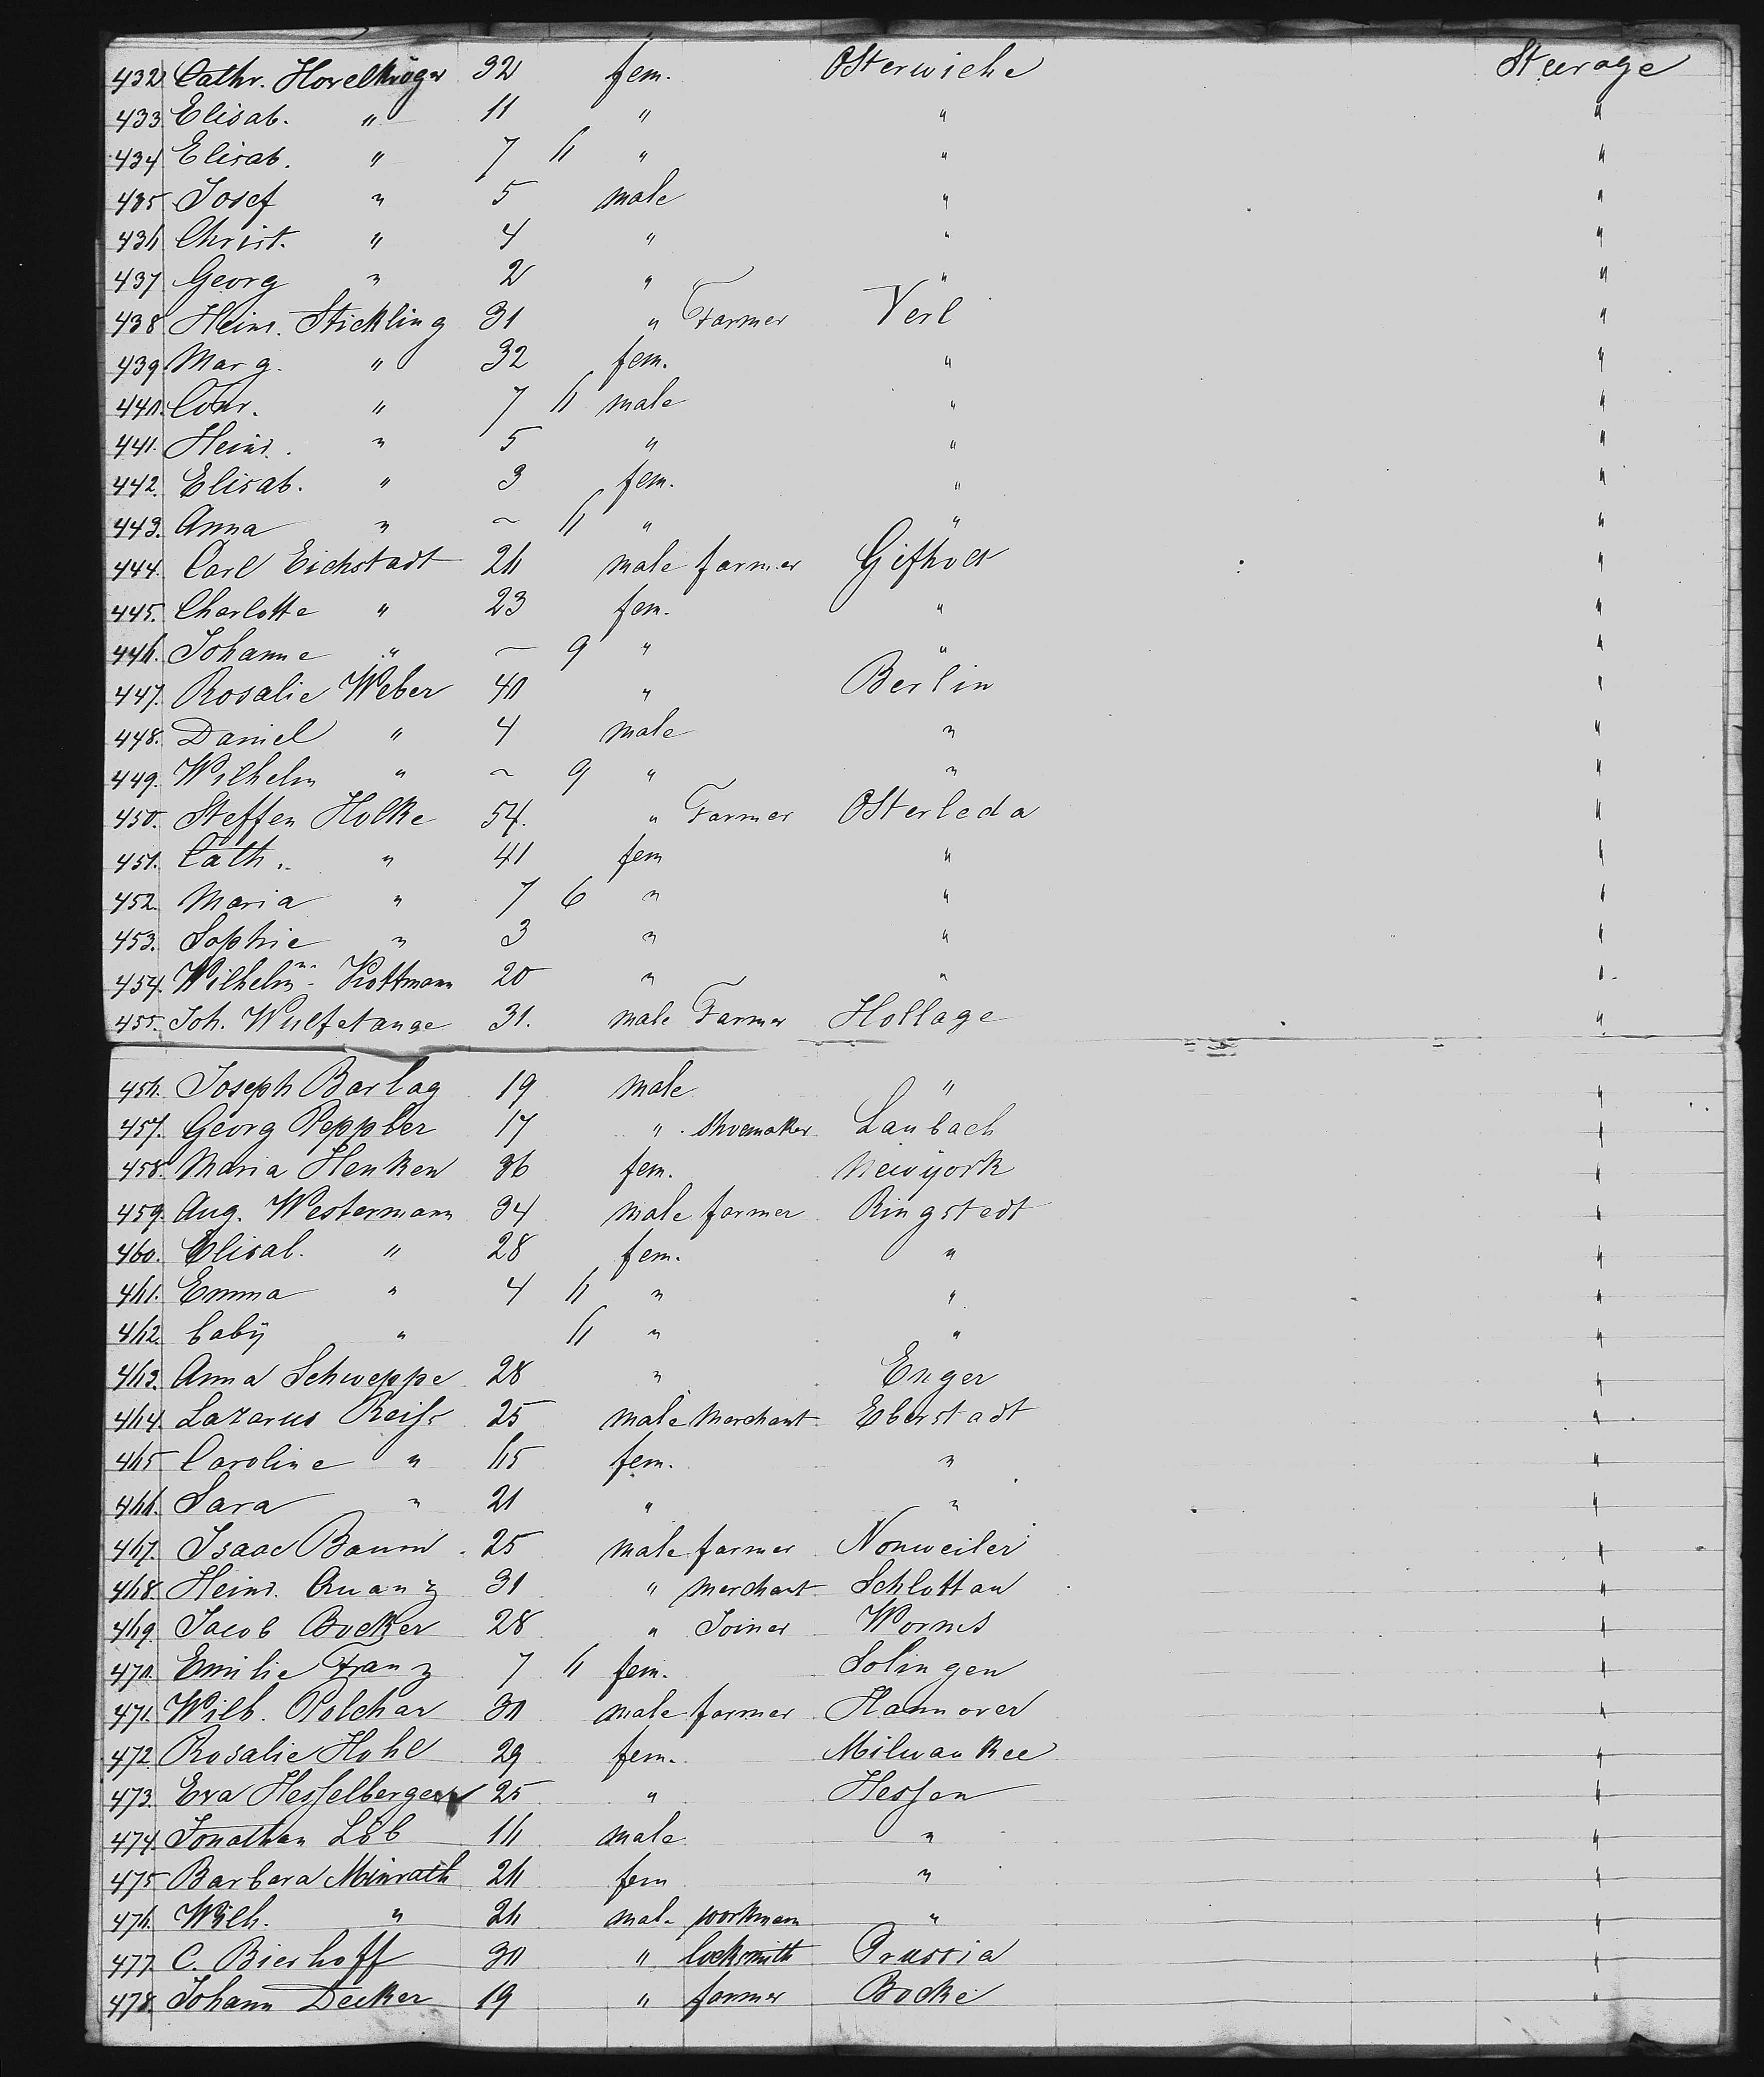 432 Cathr. Hovelkröger 32 fem. Osterwiehe Steerage
433 Elisab. " 11 " " "
434 Elisab. " 7 6 " " "
435 Josef " 5 male " "
436 Christ. " 4 " " "
437 Georg " 2 " " "
438 Heinr. Stickling 31 " Farmer Verl "
439 Marg. " 32 fem. " "
440. Conr. " 7 6 male " "
441. Heinr. " 5 " " "
442. Elisab. " 3 fem. " "
443. Anna " ~ 6 " " "
444. Carl Eichstadt 26 male farmer "
445. Charlotte " 23 fem. " "
446. Johanne " ~ 9 " " "
447. Rosalie Weber 40 " Berlin "
448. Daniel " 4 male " "
449. Wilhelm " ~ 9 " " "
450. Steffen Holke 54. " Farmer Osterleda "
451. Cath. " 41 fem " "
452. Maria " 7 6 " " "
453. Sophie " 3 " " "
454. Wilhelm. Kottmann 20 " " "
455. Joh. Wulfetange 31. male Farmer Hollage "
456. Joseph Barlag 19 male " "
457. Georg Peppler 17 " shoemaker Laubach "
458. Maria Henken 36 fem. Newyork "
459. Aug. Westermann 34 male farmer Ringstedt "
460. Elisab. " 28 fem. " "
461. Emma " 4 6 " " "
462. baby " 6 " " "
463. Anna Schweppe 28 " Enger "
464. Lazarus Reiss 25 male Merchant Eberstadt "
465 Caroline " 65 fem. " "
466. Sara " 21 " " "
467. Isaac Baum 25 male farmer Nonweiler "
468. Heinr. Quanz 31 " Merchant Schlottau "
469. Jacob Bocker 28 " Joiner Worms "
470. Emilie Franz 7 6 fem. Solingen "
471. Wilh. Polchar 30 male farmer Hannover "
472 Rosalie Hohl 29 fem. Milwaukee "
473. Eva Hesselberger 25 " Hessen "
474. Jonathan Löb 16 male " "
475 Barbara Minrath 26 fem " "
476. Wilh. " 26 male workmann " "
477. C. Bierhoff 30 " locksmith Prussia "
478. Johann Decker 19 " farmer Bocke "